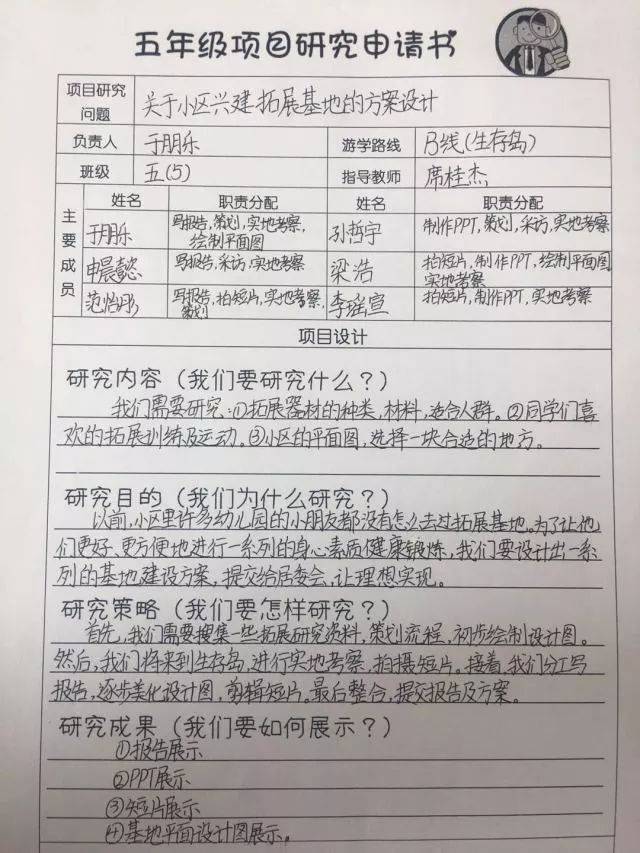 五年级项目研究申请书
项目研究问题 关于小区兴建拓展基地的方案设计
负责人 于朋乐 游学路线 B线(生存岛)
班级 五(5) 指导教师 席桂杰
主要成员 姓名 职责分配 姓名 职责分配
于朋乐 写报告,策划,实地考察,绘制平面图 孙哲宇 制作PPT,策划,采访,实地考察
申晨懿 写报告,采访,实地考察 梁浩 拍短片,制作PPT,绘制平面图 实地考察
范怡彤 写报告,拍短片,实地考察,策划 李瑶宣 拍短片,制作PPT,实地考察
项目设计
研究内容(我们要研究什么?)
我们需要研究:①拓展器材的种类,材料,适合人群。②同学们喜
欢的拓展训练及运动。③小区的平面图,选择一块合适的地方。
研究目的(我们为什么研究?)
以前,小区里许多幼儿园的小朋友都没有怎么去过拓展基地。为了让他
们更好、更方便地进行一系列的身心素质健康锻炼,我们要设计出一系
列的基地建设方案,提交给居委会,让理想实现。
研究策略(我们要怎样研究?)
首先,我们需要搜集一些拓展研究资料,策划流程,初步绘制设计图。
然后,我们将来到生存岛,进行实地考察,拍摄短片。接着,我们分工写
报告,逐步美化设计图,剪辑短片。最后整合,提交报告及方案。
研究成果(我们要如何展示?)
①报告展示
②PPT展示
③短片展示
④基地平面设计图展示。